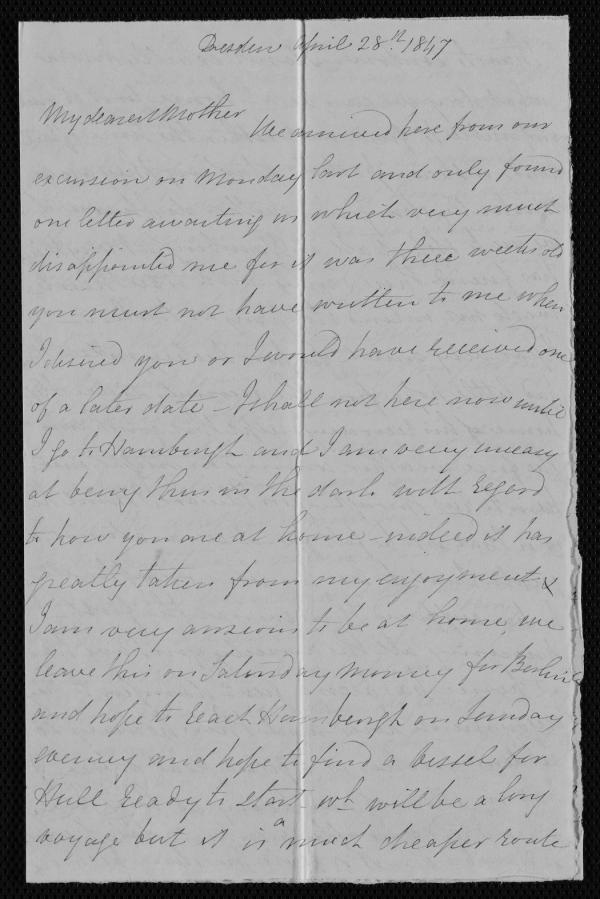 Dresden April 28th 1847
My dearest Mother
We arrived here from our
excursion on Monday last and only found
one letter awaiting us which very much
disappointed me for it was three weeks old
you must not have written to me when
I desired you or I would have received one
of a later date - I shall not here now until
I go to Hamburgh and I am very uneasy
at being thus in the dark with regard
to how you are at home - indeed it has
greatly taken from my enjoyment &
I am very anxious to be at home, we
leave this on Saturday morning for Berlin
and hope to reach Hamburgh on Sunday
evening and hope to find a vessel for
Hull ready to start wh will be a long
voyage but it is a much cheaper route